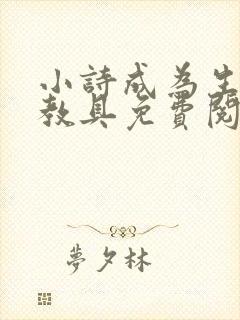 小詩成為生
教具免費閱
夢夕林